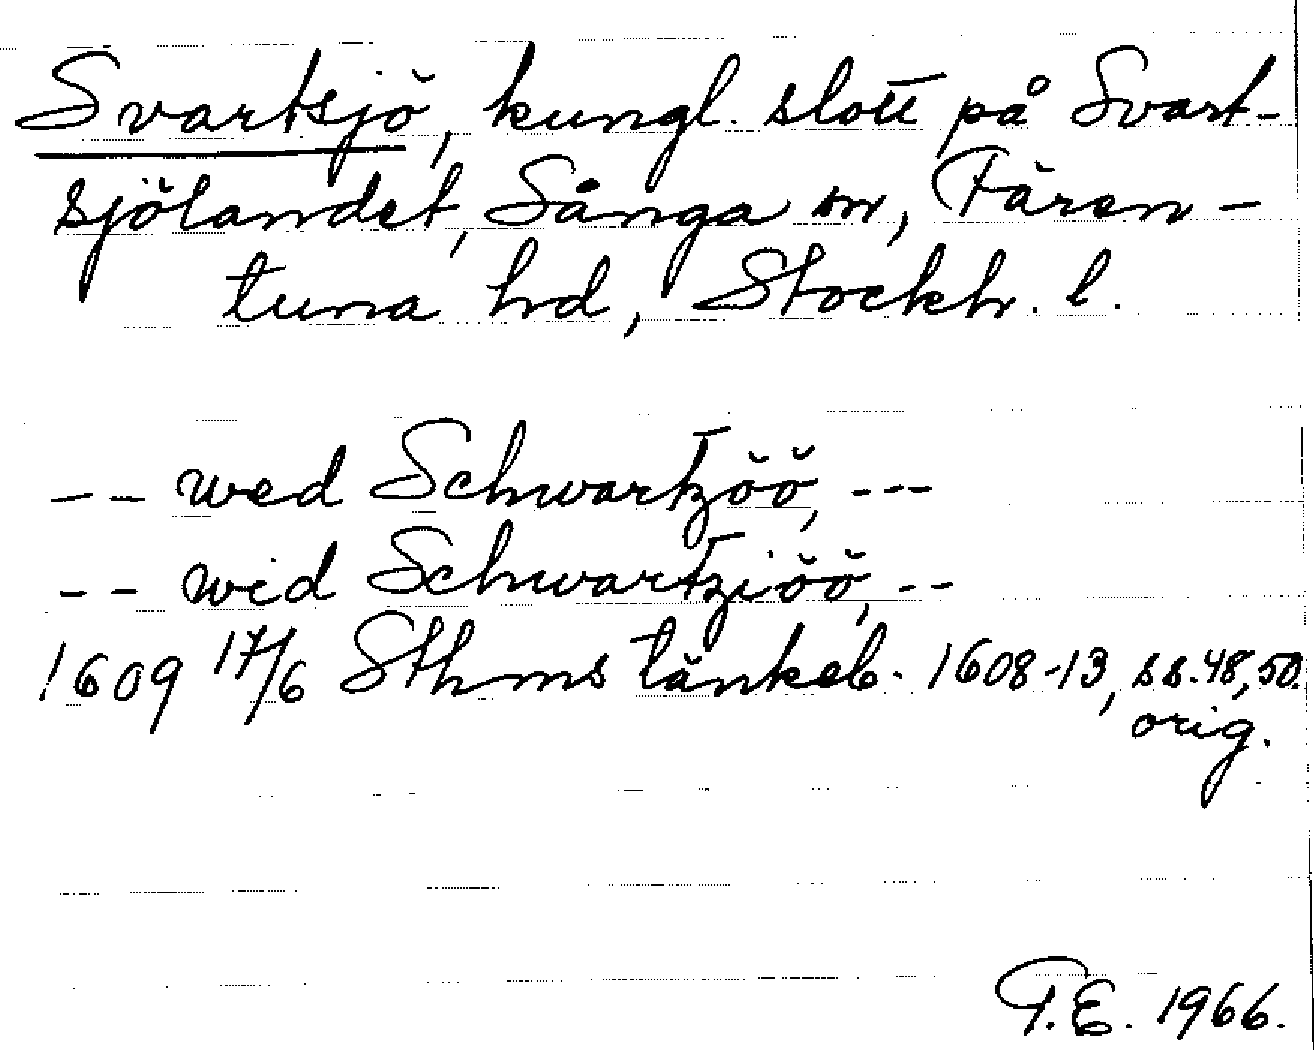 Svartsjö, kungl. slott på Svart-
sjölandet, Sånga sn, Fären-
tuna hd, Stockh. l.
-- wed Schwartzöö, ---
-- wid Schwartziöö, --
1609 17/6 Sthms tänkeb. 1608-13, ss. 48, 50.
orig.
T.E. 1966.